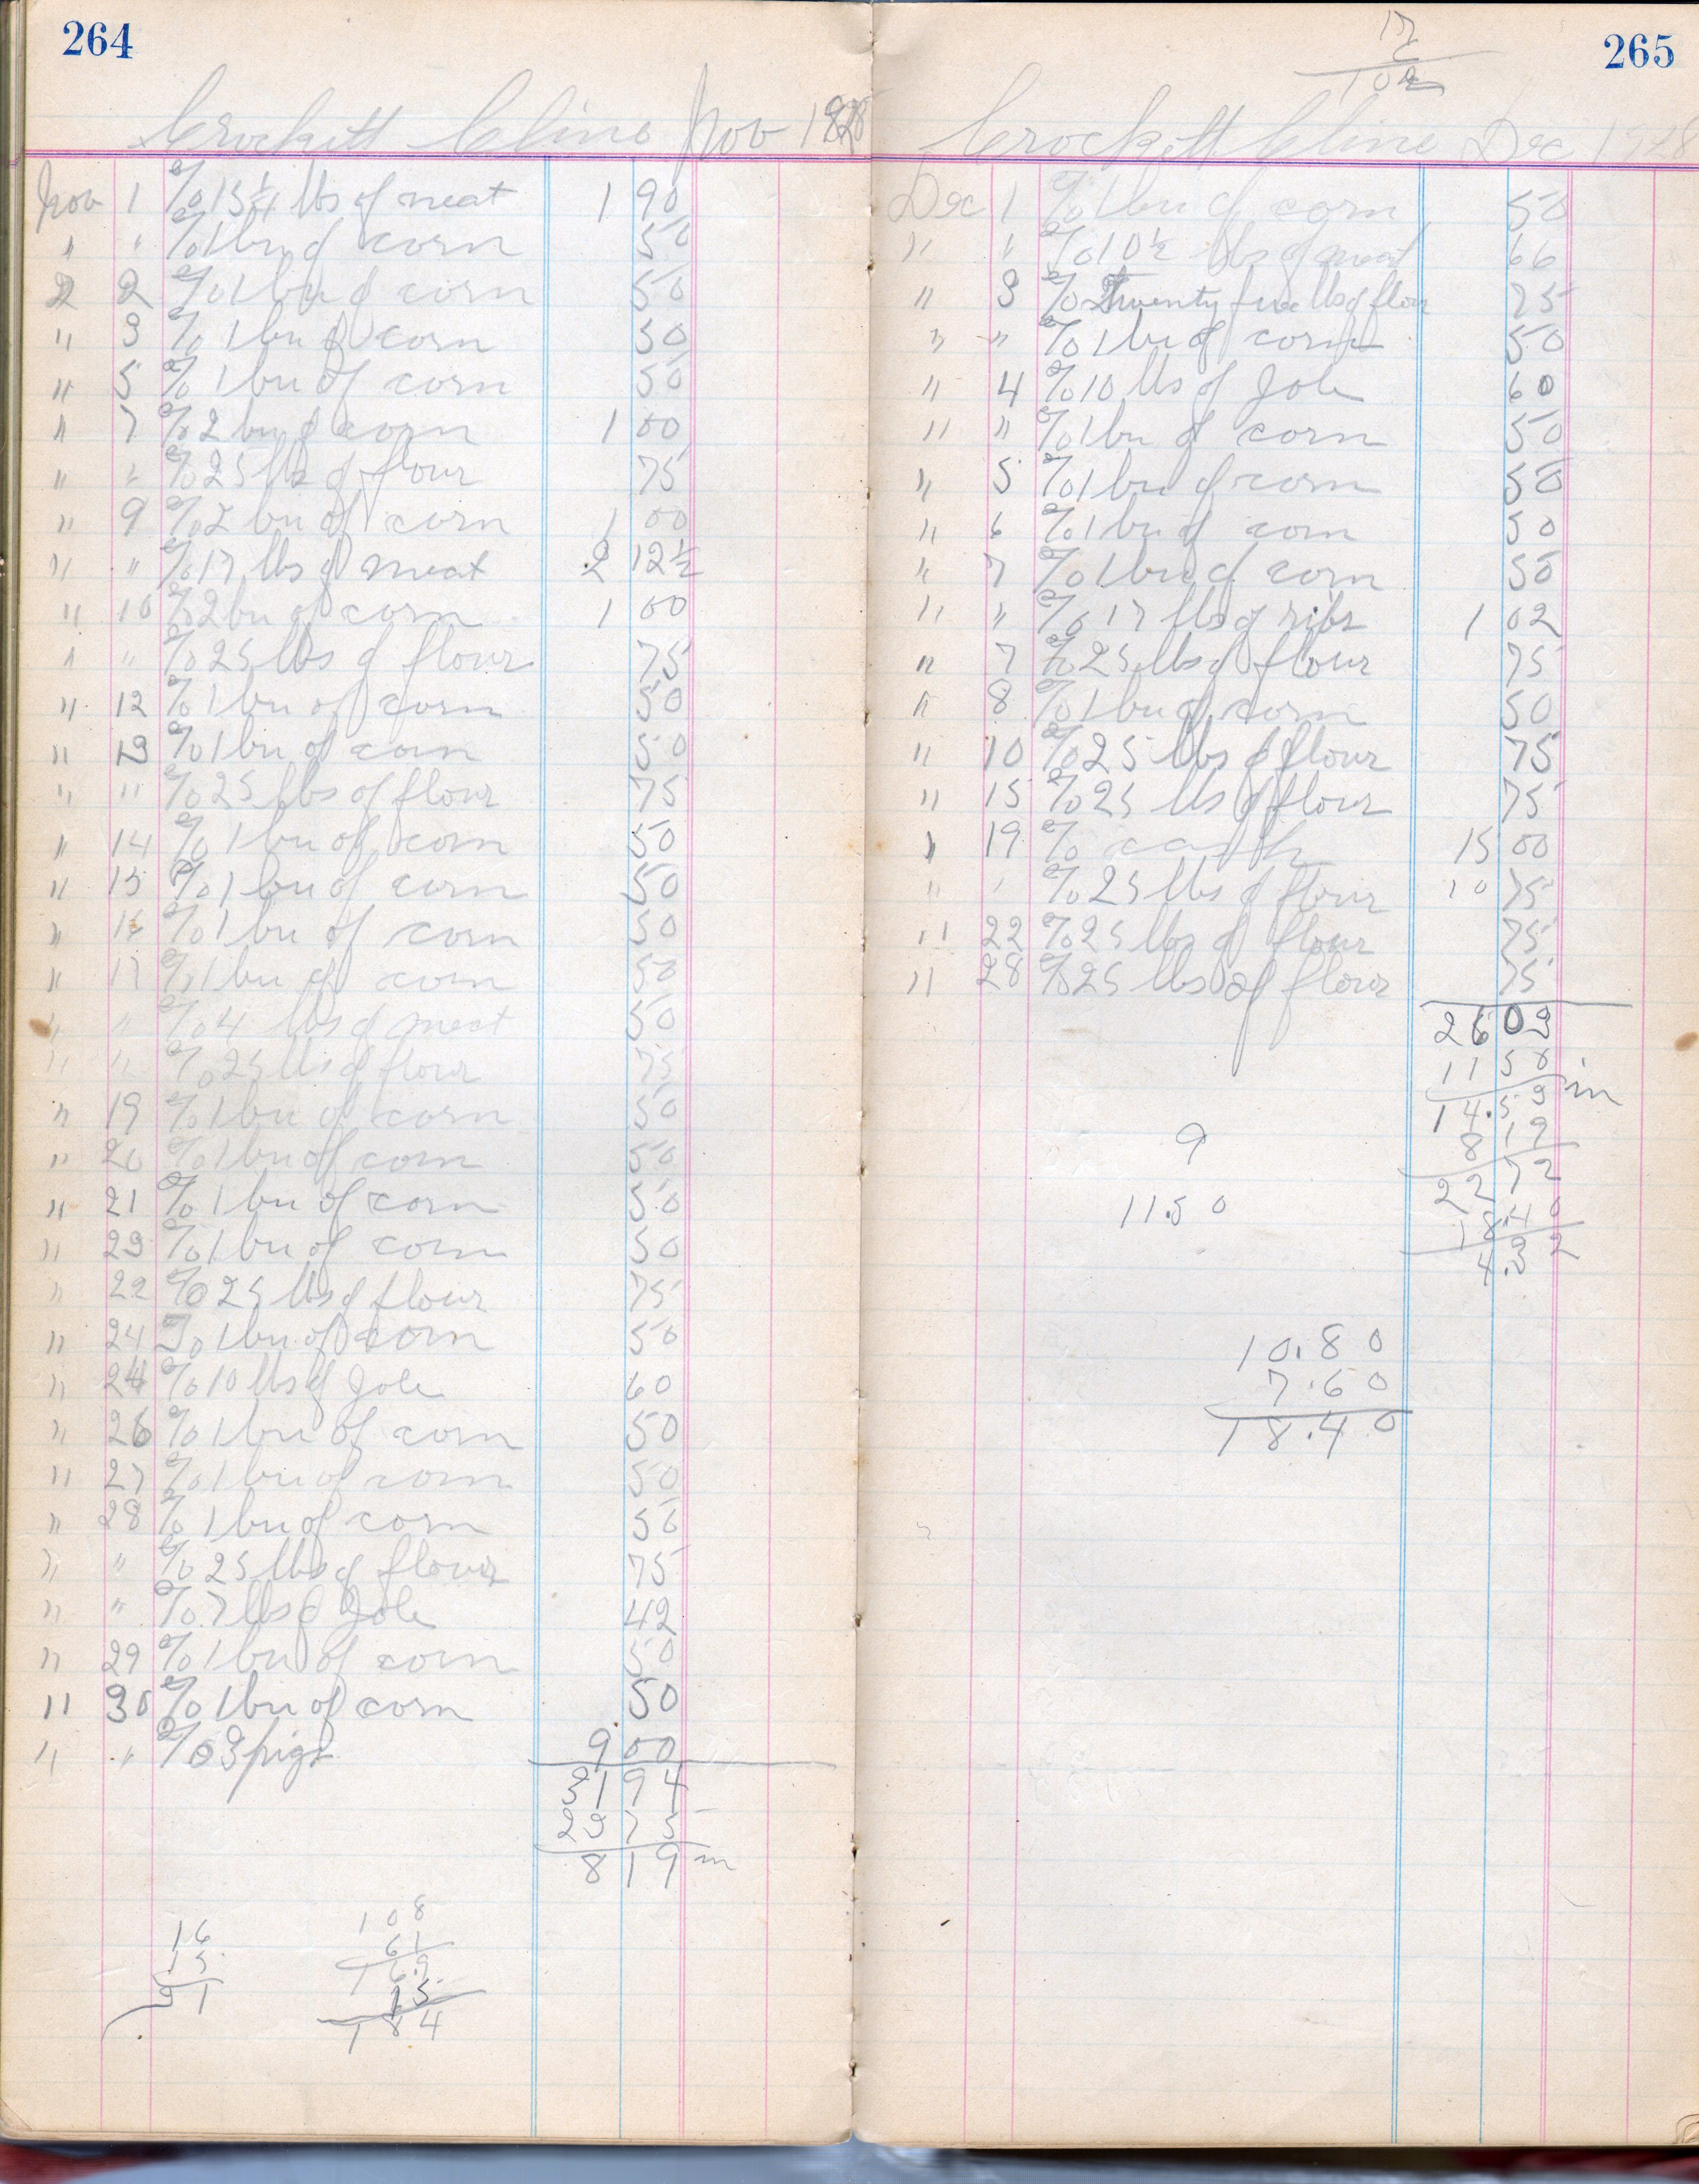 264
Crockett Cline Nov 1928
Nov 1 % 15 1/4 lbs of meat 1 90
" " % 1 bu of corn 50
2 2 % 1 bu of corn 50
" 3 % 1 bu of corn 50
" 5 % 1 bu of corn 50
" 7 % 2 bu of corn 1 00
" " % 25 lbs of flour 75
" 9 % 2 bu of corn 1 00
" " % 17 lbs of meat 2 12 1/2
" 10 % 2 bu of corn 1 00
" " % 25 lbs of flour 75
" 12 % 1 bu of corn 50
" 13 % 1 bu of corn 50
" " % 25 lbs of flour 75
" 14 % 1 bu of corn 50
" 15 % 1 bu of corn 50
" 16 % 1 bu of corn 50
" 17 % 1 bu of corn 50
" " % 4 lbs of meat 50
" " % 25 lbs of flour 75
" 19 % 1 bu of corn 50
" 20 % 1 bu of corn 50
" 21 % 1 bu of corn 50
" 23 % 1 bu of corn 50
" 22 % 25 lbs of flour 75
" 24 % 1 bu of corn 50
" 24 % 10 lbs of Jole 60
" 26 % 1 bu of corn 50
" 27 % 1 bu of corn 50
" 28 % 1 bu of corn 50
" " % 25 lbs of flour 75
" " % 7 lbs of Jole 42
" 29 % 1 bu of corn 50
" 30 % 1 bu of corn 50
" " % 3 pigs 9 00
31 94
23 75
8 19 in
16
15
31
108
61
169
15
184
265
17
6
102
Crockett Cline Dec 1928
Dec 1 % 1 bu of corn 50
" " % 10 1/2 lbs of meat 66
" 3 % Twenty five lbs of flour 75
" " % 1 bu of corn 50
" 4 % 10 lbs of Jole 60
" " % 1 bu of corn 50
" 5 % 1 bu of corn 50
" 6 % 1 bu of corn 50
" 7 % 1 bu of corn 50
" " % 17 lbs of ribs 1 02
" 7 % 25 lbs of flour 75
" 8 % 1 bu of corn 50
" 10 % 25 lbs of flour 75
" 15 % 25 lbs of flour 75
" 19 % cash 15 00
" " % 25 lbs of flour 10 75
" 22 % 25 lbs of flour 75
" 28 % 25 lbs of flour 75
26 03
11 50
14.53 in
8 19
22 72
18.40
4.32
9
11.50
10.80
7.60
18.40